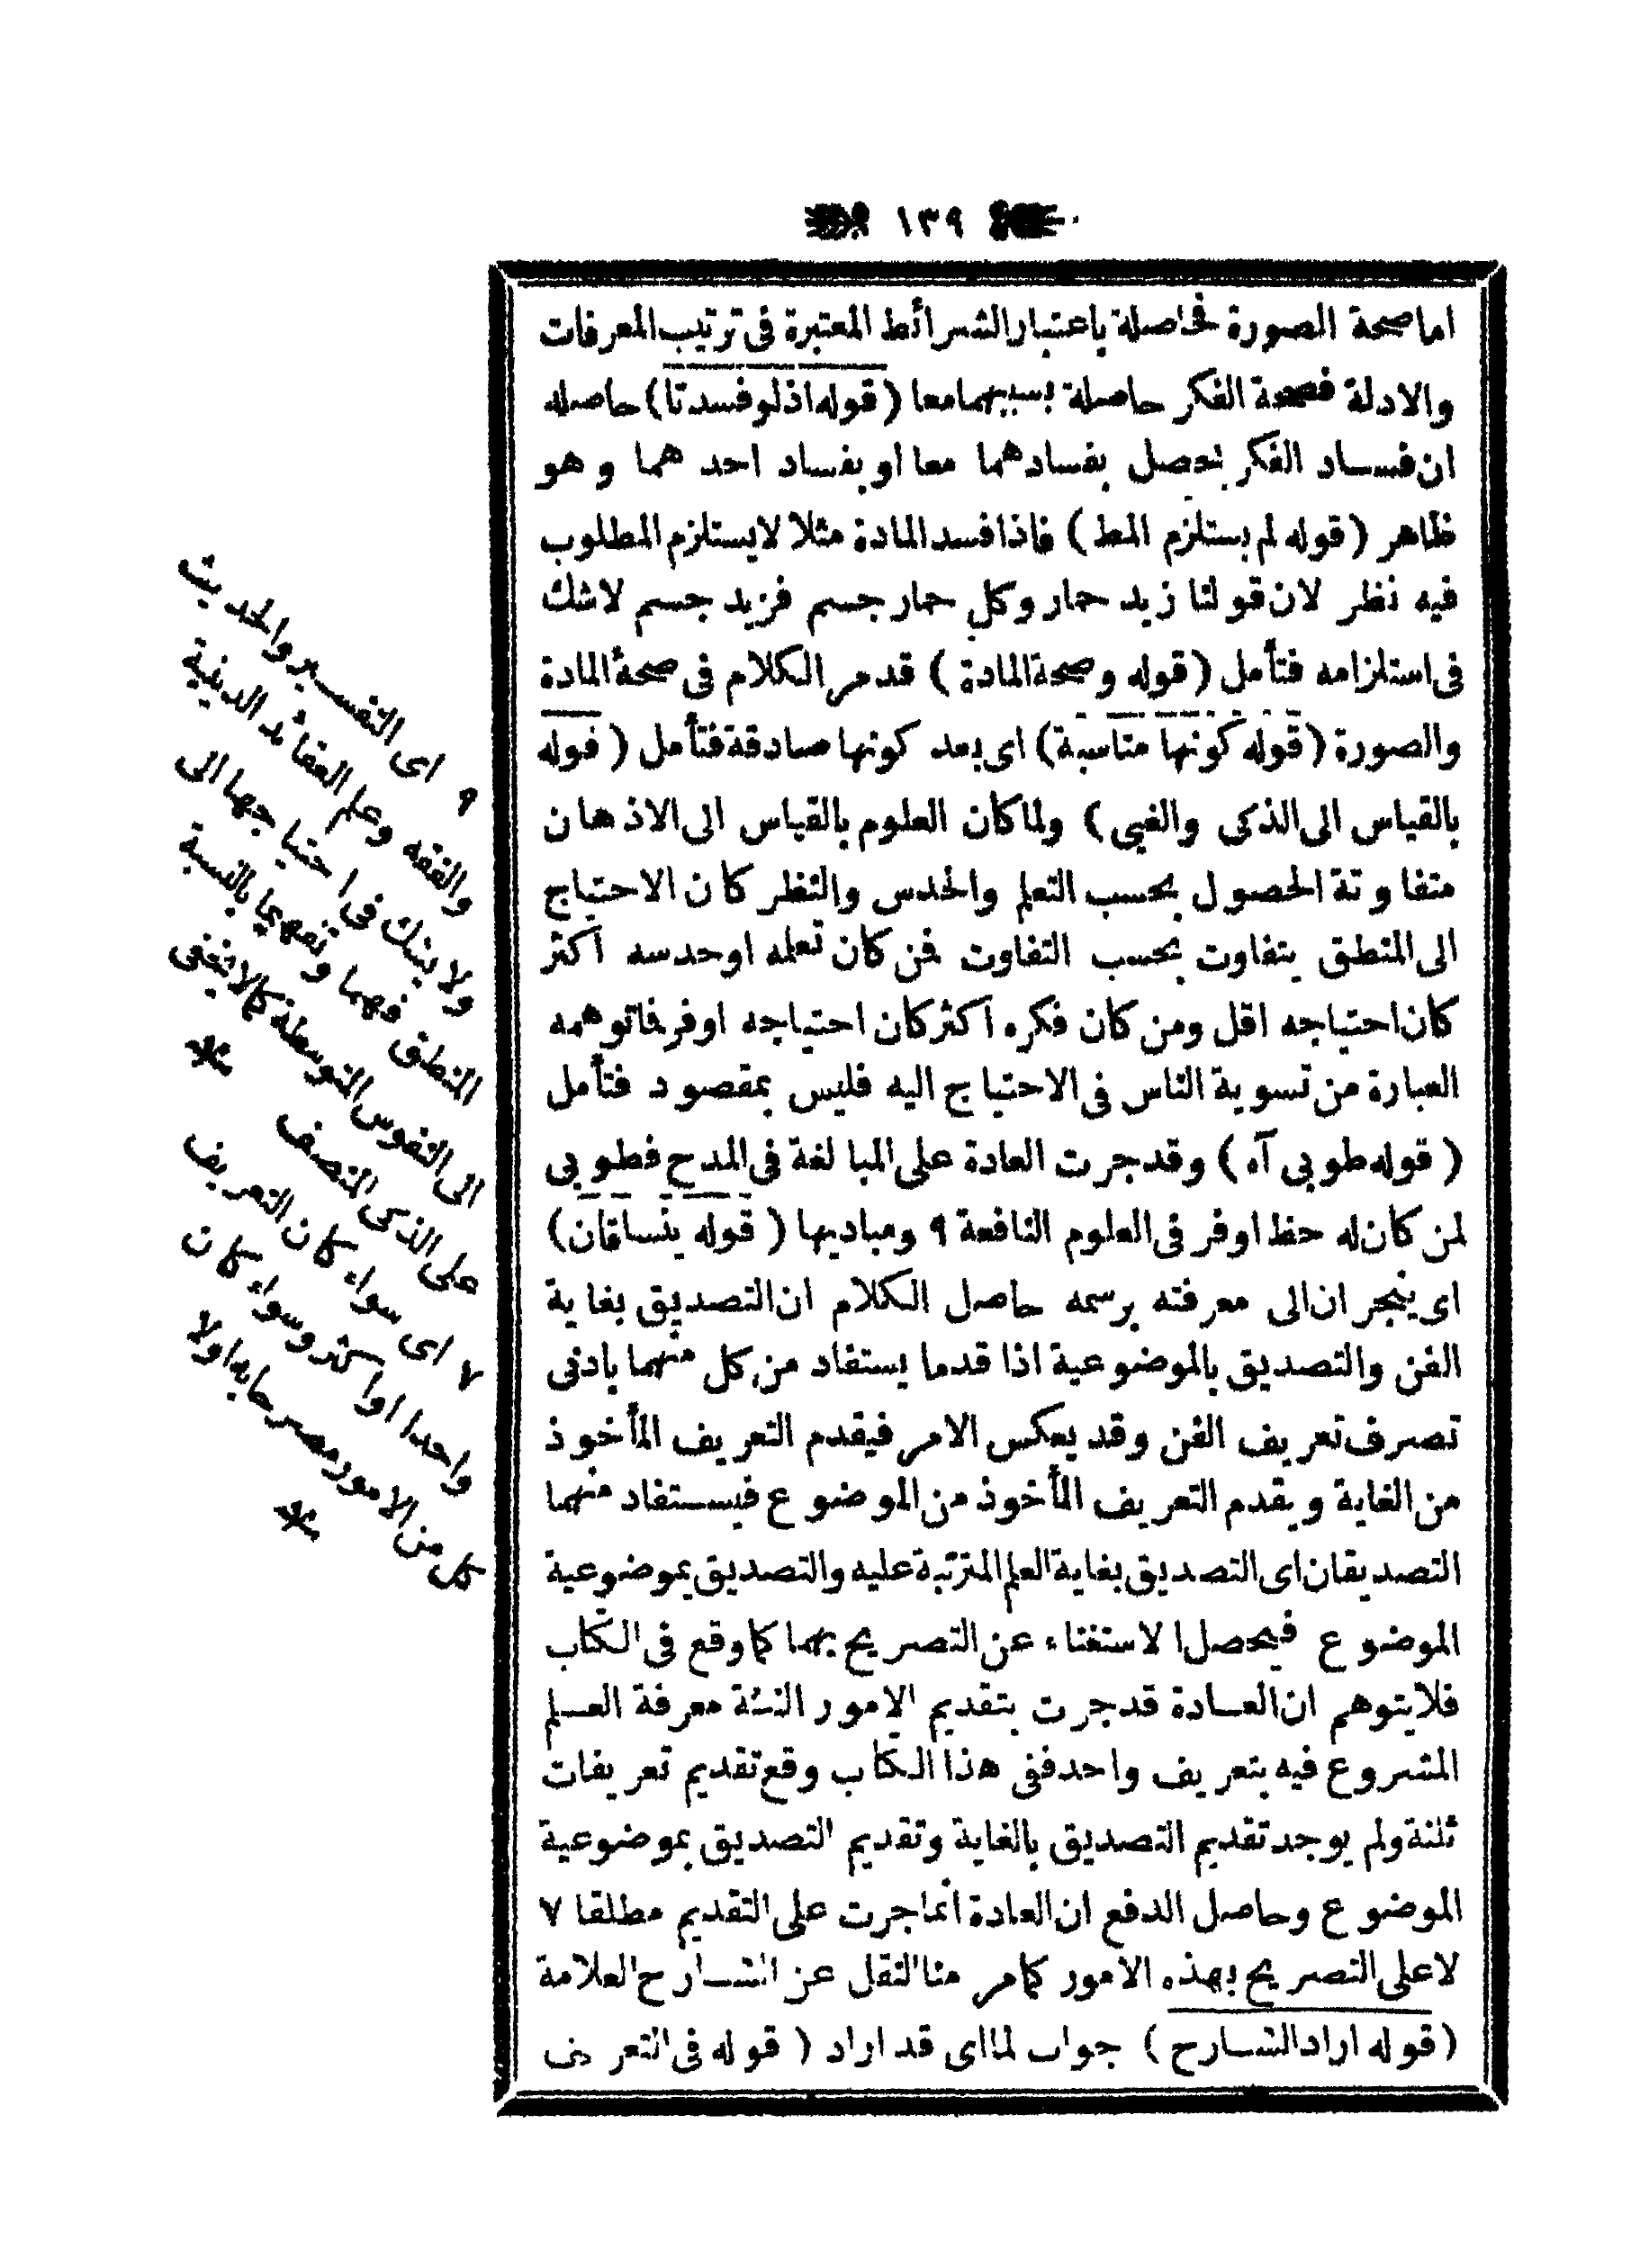 ١٣٩
اما صحة الصورة فحاصلة باعتبار الشرائط المعتبرة فى ترتيب المعرفات
والادلة فصحة الفكر حاصلة بسببهما معا (قوله اذلو فسدتا) حاصله
ان فساد الفكر يحصل بفسادهما معا او بفساد احد هما و هو
ظاهر (قوله لم يستلزم المط) فاذا فسد المادة مثلا لا يستلزم المطلوب
فيه نظر لان قولنا زيد حمار وكل حمار جسم فزيد جسم لاشك
فى استلزامه فتأمل (قوله وصحة المادة) قد مر الكلام فى صحة المادة
والصورة (قوله كونها مناسبة) اى بعد كونها صادقة فتأمل (قوله
بالقياس الى الذكى والغبى) ولما كان العلوم بالقياس الى الاذهان
متفاوتة الحصول بحسب التعلم والحدس والنظر كان الاحتياج
الى المنطق يتفاوت بحسب التفاوت فمن كان تعلمه او حدسه اكثر
كان احتياجه اقل ومن كان فكره اكثر كان احتياجه اوفر فماتوهمه
العبارة من تسوية الناس فى الاحتياج اليه فليس بمقصود فتأمل
(قوله طوبى آه) وقد جرت العادة على المبالغة فى المدح فطوبى
لمن كان له حظ اوفر فى العلوم النافعة ٩ ومباديها (قوله ينساقان)
اى ينجران الى معرفته برسمه حاصل الكلام ان التصديق بغاية
الفن والتصديق بالموضوعية اذا قدما يستفاد من كل منهما بادنى
تصرف تعريف الفن وقد يعكس الامر فيقدم التعريف المأخوذ
من الغاية ويقدم التعريف المأخوذ من الموضوع فيستفاد منهما
التصديقان اى التصديق بغاية العلم المترتبة عليه والتصديق بموضوعية
الموضوع فيحصل الاستغناء عن التصريح بهما كما وقع فى الكتاب
فلا يتوهم ان العادة قد جرت بتقديم الامور الثلثة معرفة العلم
المشروع فيه بتعريف واحد ففى هذا الكتاب وقع تقديم تعريفات
ثلثة ولم يوجد تقديم التصديق بالغاية وتقديم التصديق بموضوعية
الموضوع وحاصل الدفع ان العادة انما جرت على التقديم مطلقا ٧
لا على التصريح بهذه الامور كما مر منا النقل عن الشارح العلامة
(قوله اراد الشارح) جواب لما اى قد اراد (قوله فى التعريف
٩ اى التفسير والحديث
والفقه وعلم العقائد الدينية
ولا ينك فى احتياجها الى
المنطق فهما وتفهيما بالنسبة
الى النفوس المتوسطة كما لا يخفى
على الذكى المنصف
٧ اى سواء كان التعريف
واحدا او اكثر وسواء كان
كل من الامور مصرحا به اولا